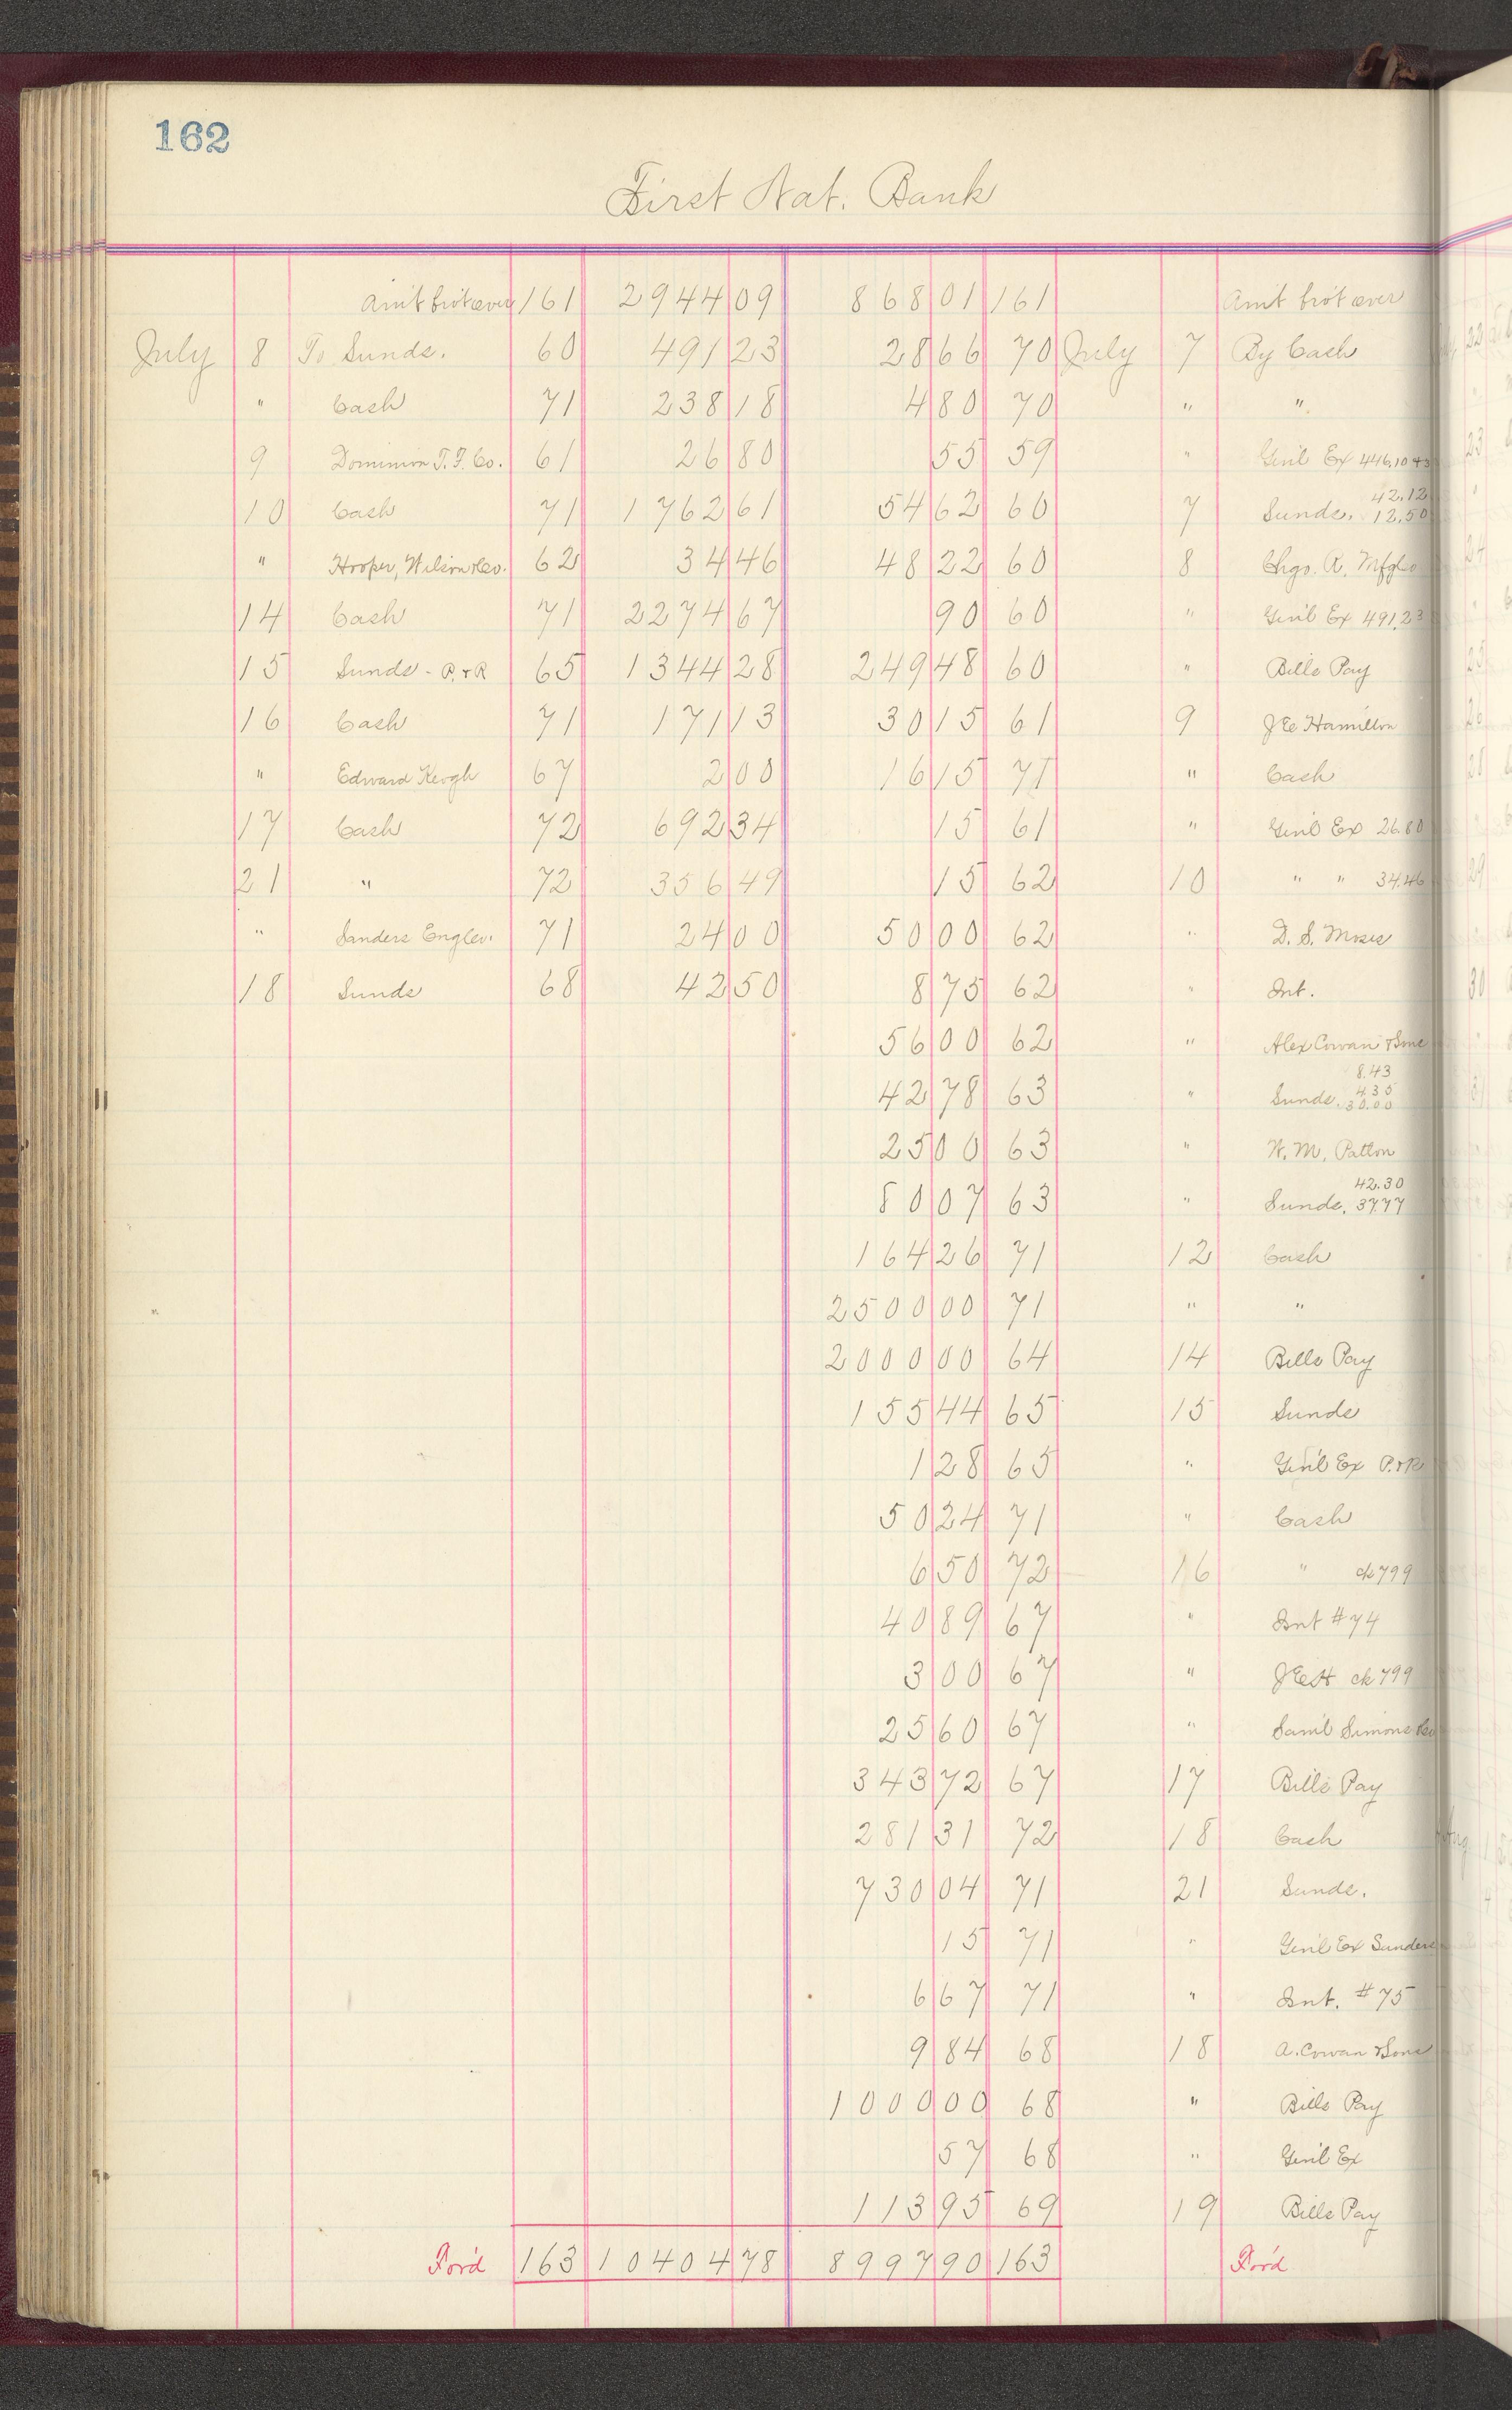 162
First Nat. Bank
Am't bro't over 161 2944 09 868 01 161 Am't bro't over
July 8 To Sunds. 60 491 23 28 66 70 July 7 By Cash
" Cash 71 238 18 4 80 70 " "
9 Dominion T. F. Co. 61 26 80 55 59 " Gen'l Ex 446.10
10 Cash 71 1762 61 54 62 60 7 Sunds. 42.12 12.50
" Hooper, Wilson & Co. 62 34 46 48 22 60 8 Chgo. R. Mfg Co
14 Cash 71 2274 67 90 60 " Gen'l Ex 491.23
15 Sunds - P. & R 65 1344 28 249 48 60 " Bills Pay
16 Cash 71 171 13 30 15 61 9 J E Hamilton
" Edward Keogh 67 2 00 16 15 71 " Cash
17 Cash 72 692 34 15 61 " Gen'l Ex 26.80
21 " 72 356 49 15 62 10 " " 34.46
" Sanders Eng Co. 71 24 00 50 00 62 " D. S. Moses
18 Sunds 68 42 50 8 75 62 " Int.
56 00 62 " Alex Cowan & Sons
42 78 63 " Sunds. 8.43 4.35 30.00
25 00 63 " W. M. Patton
80 07 63 " Sunds. 42.30 37.77
164 26 71 12 Cash
2500 00 71 " "
2000 00 64 14 Bills Pay
155 44 65 15 Sunds
1 28 65 " Gen'l Ex P. & R
50 24 71 " Cash
6 50 72 16 " ck 799
40 89 67 " Int #74
3 00 67 " J E H ck 799
25 60 67 " Sam'l Simons & Co
343 72 67 17 Bills Pay
281 31 72 18 Cash
730 04 71 21 Sunds.
15 71 " Gen'l Ex Sanders
6 67 71 " Int. #75
9 84 68 18 A. Cowan & Sons
1000 00 68 " Bills Pay
57 68 " Gen'l Ex
113 95 69 19 Bills Pay
For'd 163 10404 78 8997 90 163 For'd